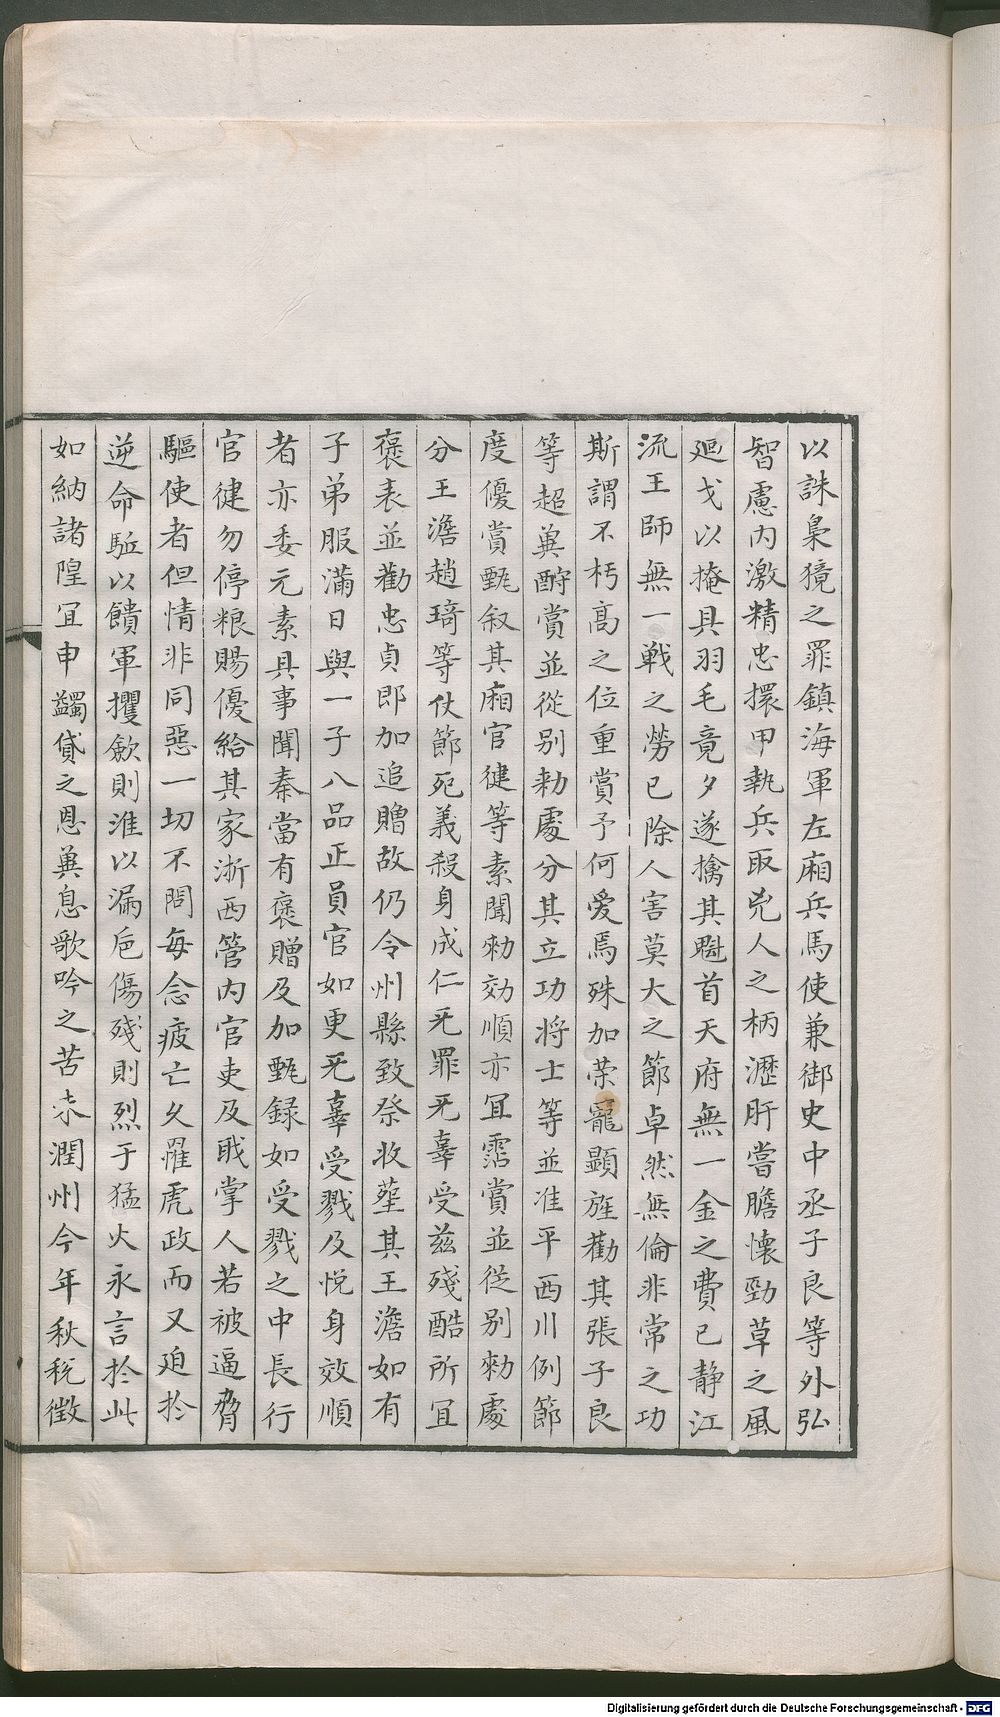 以誅梟獍之罪鎮海軍左廂兵馬使兼御史中丞子良等外弘
智慮內激精忠擐甲執兵取兇人之柄瀝肝嘗膽懷勁草之風
𢌞戈以掩具羽毛竟夕遂擒其魁首天府無一金之費已静江
流王師無一戰之勞已除人害莫大之節卓然無倫非常之功
斯謂不朽高之位重賞予何愛焉殊加荣寵顯旌勸其張子良
等超兾酧賞並從别勑處分其立功将士等並准平西川例節
度優賞甄叙其廂官健等素聞勑効順亦冝霑賞並從别勑處
分王澹趙琦等仗節死義殺身成仁无罪无辜受兹殘酷所冝
襃表並勸忠貞即加追贈故仍令州縣致祭收塟其王澹如有
子弟服滿日與一子八品正員官如更无辜受戮及悅身效順
者亦委元素具事聞奏當有襃贈及加甄録如受戮之中長行
官健勿停粮賜優給其家浙西管内官吏及戢掌人若被逼脅
驅使者但情非同惡一切不問每念疲亡久罹虎政而又廹扵
逆命駈以饋軍攫歛則淮以漏巵傷殘則烈于猛火永言扵此
如納諸隍冝申蠲貸之恩兾息歌吟之苦夲潤州今年秋稅徴
Digitalisierung gefördert durch die Deutsche Forschungsgemeinschaft - DFG